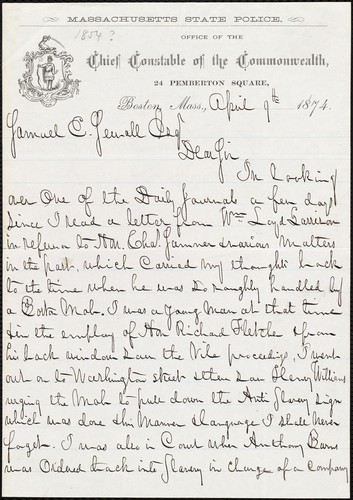 MASSACHUSETTS STATE POLICE.
1854?
OFFICE OF THE
Chief Constable of the Commonwealth,
24 PEMBERTON SQUARE,
Boston, Mass., April 9th 1874.
Samuel E. Sewall Esqr
Dear Sir
In Looking
over One of the Daily Journals a few days
since I read a letter from Wm Loyd Garrison
in referen to Hon. Chas. Sumner & various Matters
in the past, which Carried my thoughts back
to the time when he was so roughly handled by
a Boston Mob, I was a young Man at that time
& in the employ of Hon Richard Fletcher & from
his back window saw the Vile proceedings, I went
out on to Washington street & then saw Henry Williams
urging the Mob to pull down the Anti Slavery Sign
which was done this Manner & language I shall Never
forget. I was also in Court when Anthony Burns
was Ordered back into Slavery in charge of a Company